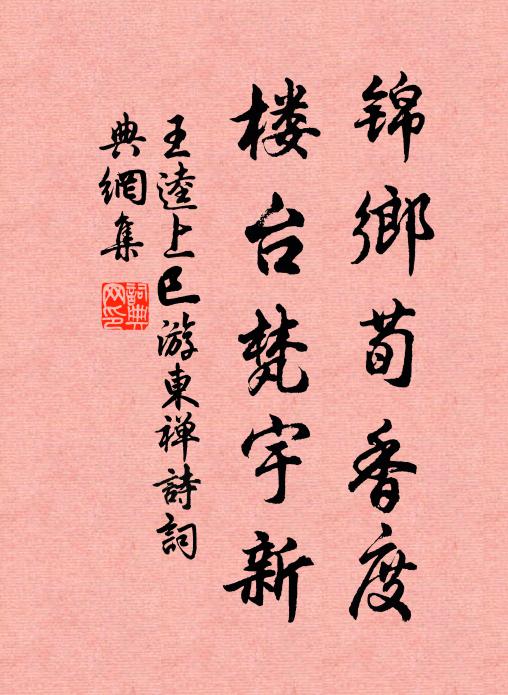 锦鄉荀香度
楼台梵宇新
王逵上巳游東禅詩詞
典網集
詞典
网印